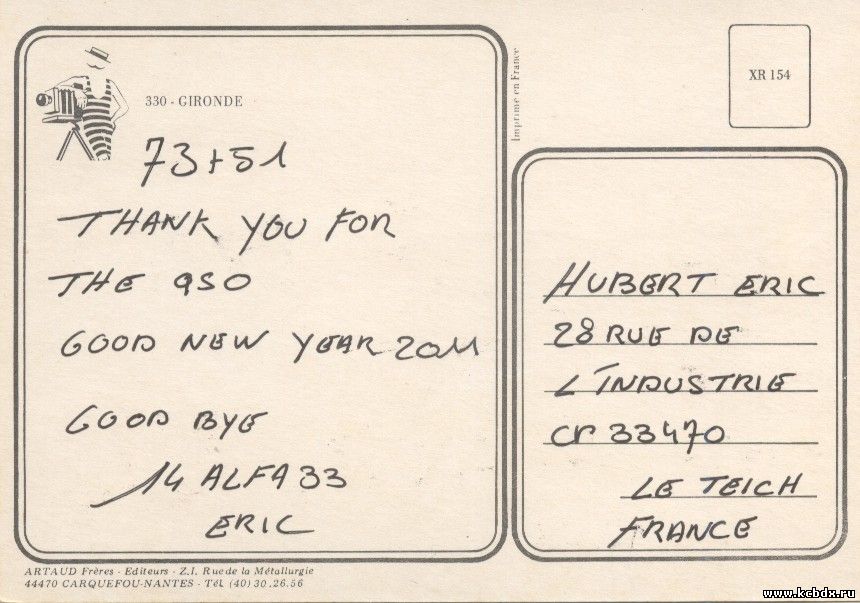 330 - GIRONDE
73+51
THANK YOU FOR
THE QSO
GOOD NEW YEAR 2011
GOOD BYE
14 ALFA 33
ERIC
ARTAUD Frères - Editeurs - Z.I. Rue de la Métallurgie
44470 CARQUEFOU-NANTES - Tél. (40) 30.26.56
Imprimé en France
XR 154
HUBERT ERIC
28 RUE DE
L'INDUSTRIE
CP 33470
LE TEICH
FRANCE
www.kcbdx.ru